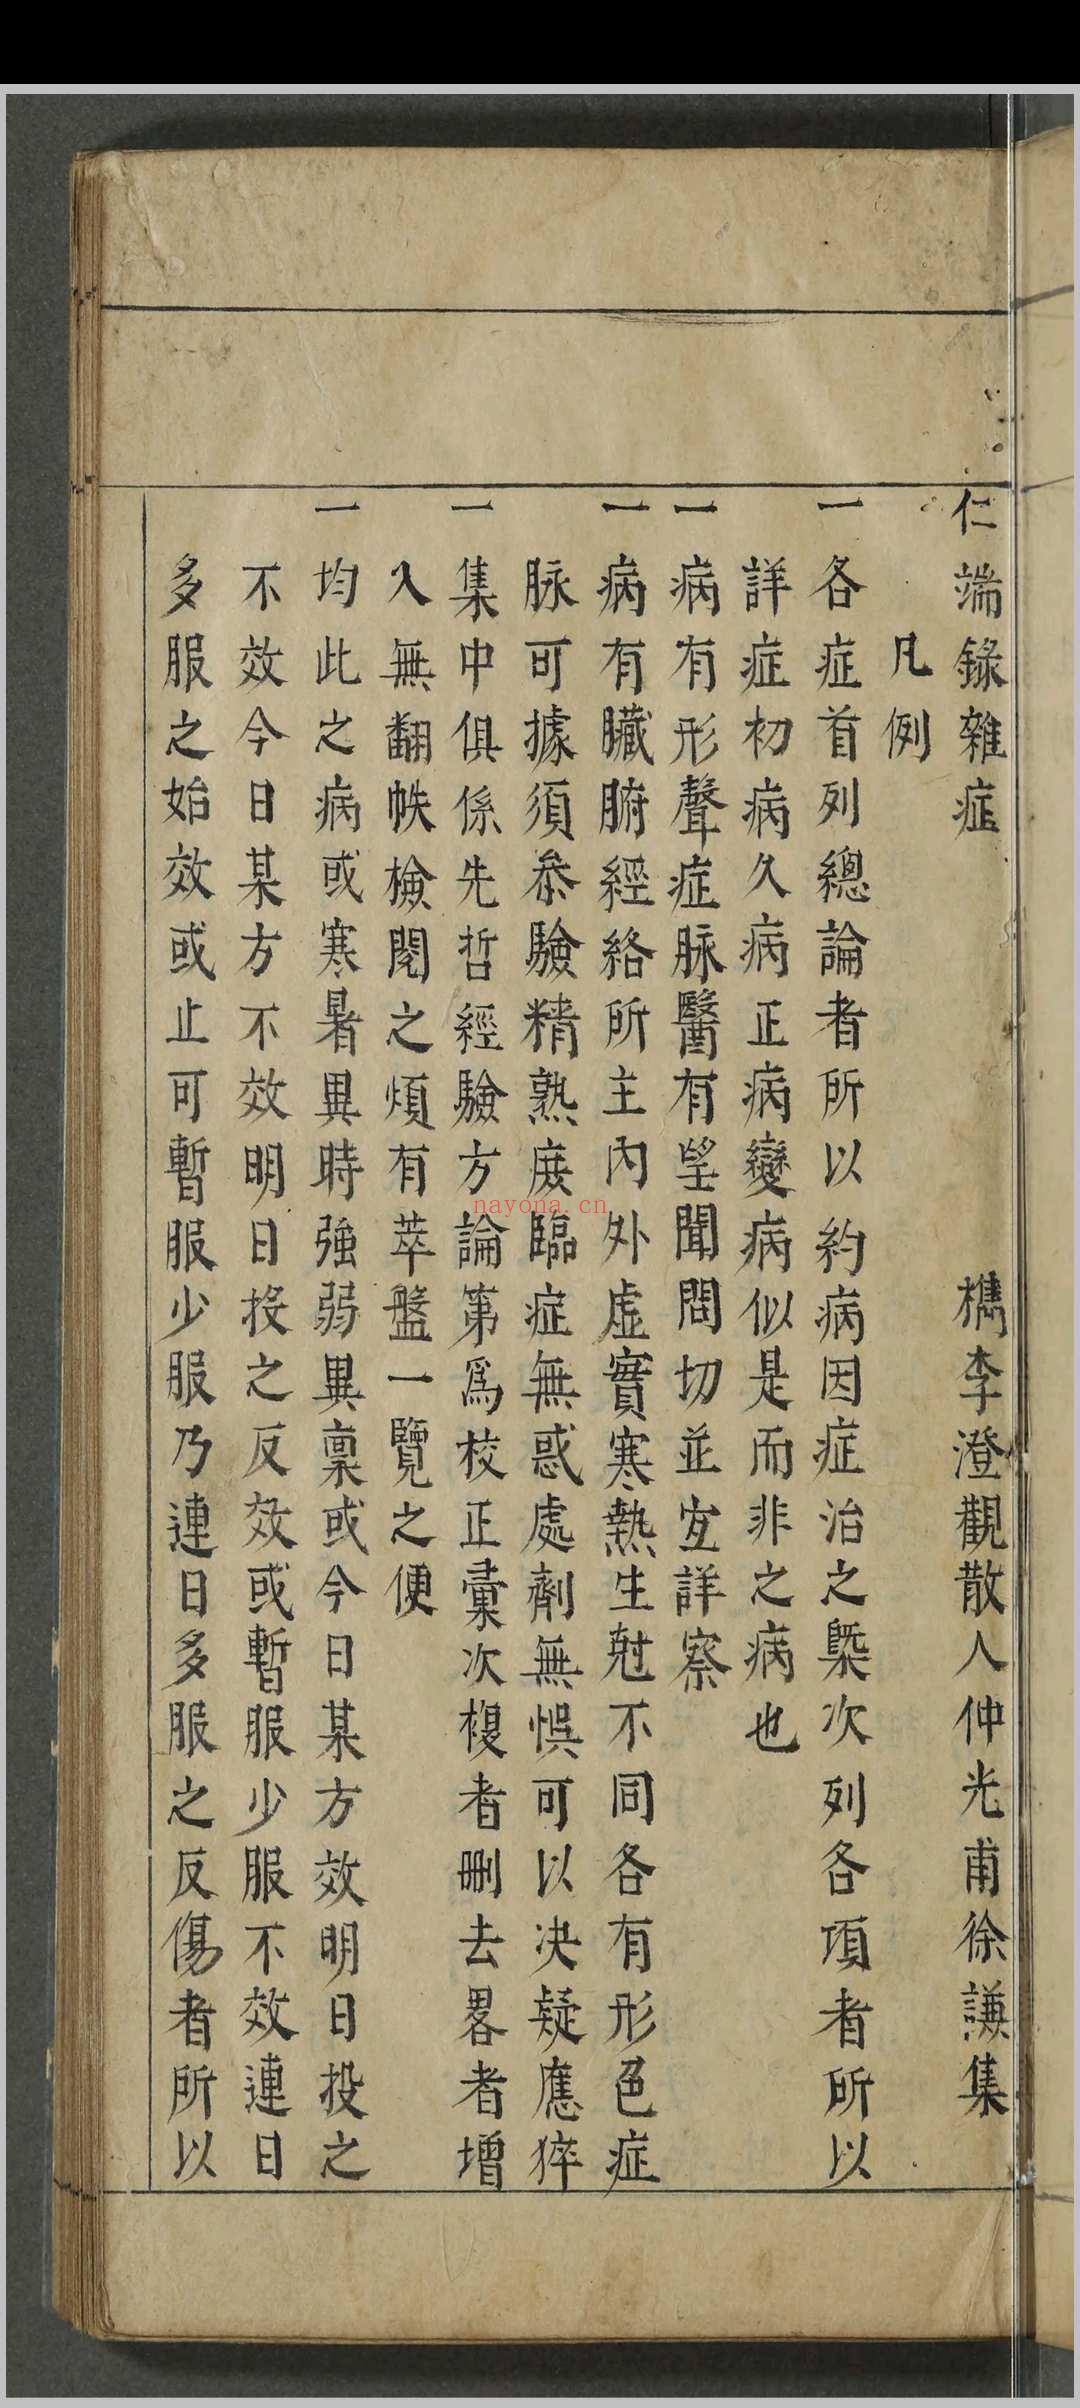 仁端錄雜症
檇李澄觀散人仲光甫徐謙集
凡例
一各症首列總論者所以約病因症治之槩次列各項者所以
詳症初病久病正病變病似是而非之病也
一病有形聲症脉醫有望聞問切並宜詳察
一病有臟腑經絡所主內外虛實寒熱生尅不同各有形色症
脉可據須叅驗精熟庶臨症無惑處劑無悞可以决疑應猝
一集中俱係先哲經驗方論第爲校正彙次複者刪去畧者增
入無翻帙檢閱之煩有萃盤一覽之便
一均此之病或寒暑異時強弱異禀或今日某方效明日投之
不效今日某方不效明日投之反效或暫服少服不效連日
多服之始效或止可暫服少服乃連日多服之反傷者所以
nayona.cn